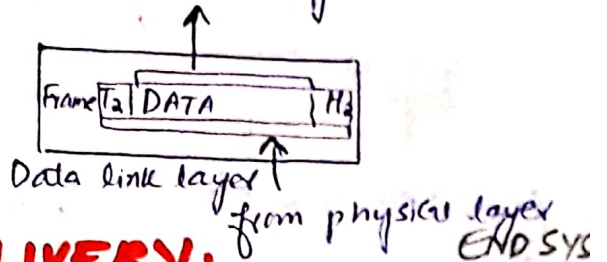 Frame T2 DATA H2
Data link layer
from physical layer
END SYS
LIVERY: